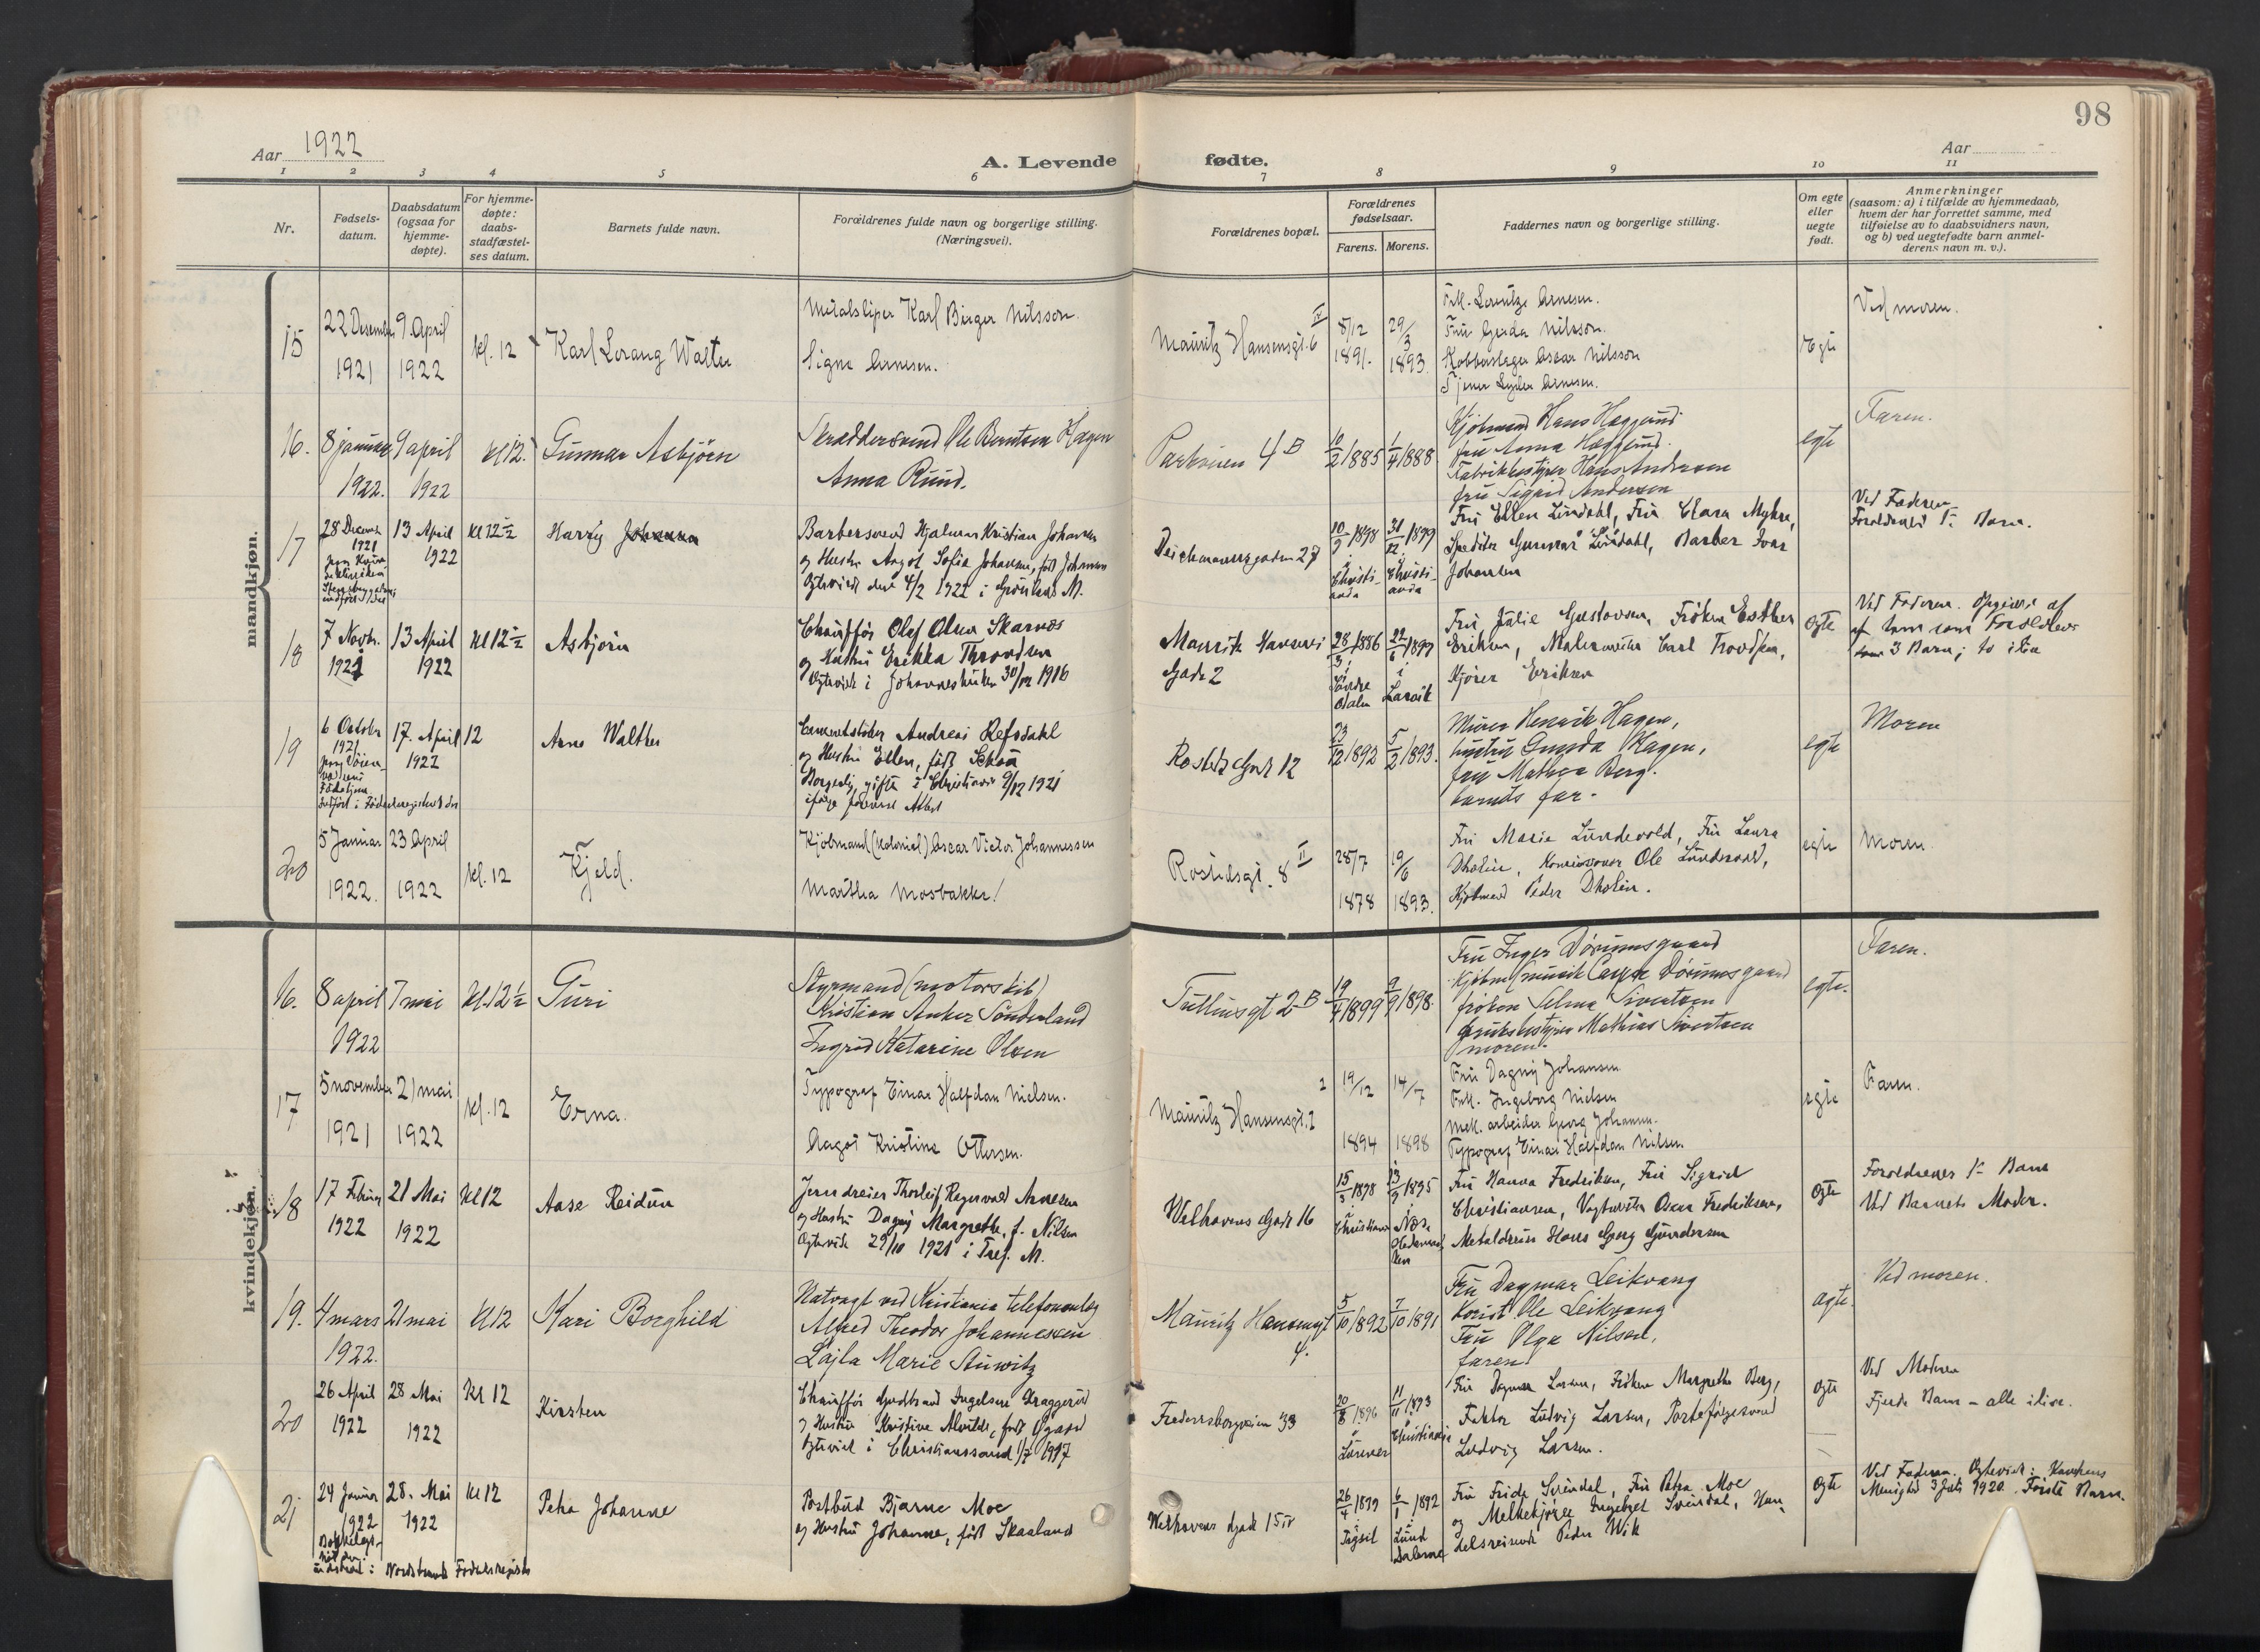 98
Aar 1922
A. Levende fødte.
Aar
1 2 3 4 5 6 7 8 9 10 11
Nr.
Fødsels-
datum.
Daabsdatum
(ogsaa for
hjemme-
døpte).
For hjemme-
døpte:
daabs-
stadfæstel-
ses datum.
Barnets fulde navn.
Forældrenes fulde navn og borgerlige stilling.
(Næringsvei).
Forældrenes bopæl.
Forældrenes
fødselsaar.
Farens. Morens.
Faddernes navn og borgerlige stilling.
Om egte
eller
uegte
født.
Anmerkninger
(saasom: a) i tilfælde av hjemmedaab,
hvem der har forrettet samme, med
tilføielse av to daabsvidners navn,
og b) ved uegtefødte barn anmel-
derens navn m. v.).
mandkjøn.
15
22 Desember
1921
9 April
1922
kl. 12
Karl Lorang Walter
Metalsliper Karl Birger Nilsson.
Signe Arnesen.
Mauritz Hansensgt. 6 IV
8/12
1891.
29/3
1893.
Frk. Lorentze Arnesen.
Fru Gerda Nilsson.
Kobberslager Oscar Nilsson
Tjener Arnesen.
egte
Ved moren.
16.
8 januar
1922.
9 april
1922
kl 12.
Gunnar Asbjörn
Skræddersvend Ole Berntsen Hagen
Anna Ruud.
Parkveien 4 B
10/2 1885
1/4 1888
Kjöbmand Hans Hæggerud
fru Anna Hæggerud.
Fabrikbestyrer Hans Andersen
fru Sigrid Andersen
egte
Faren.
17
28 Decemb
1921
13 April
1922
Kl 12 ½
Harry Johanna
Barbersvend Hjalmar Kristian Johansen
og Hustru Aagot Sofie Johanne, født Johansen
Egteviede den 4/2 1922 i Grönland M.
Deichmannsgaden 27
10/9 1898
Christiania
31/12 1899
Christiania
Fru Ellen Lindahl, Fru Clara Myhre,
Speditør Gunnar Lindahl, Barber Ivar
Johansen
Ved Faderen
Forældrenes 1ste Barn.
18
7 Novbr.
1921
13 April
1922
Kl 12 ½
Asbjörn
Chaufför Olaf Olsen Skarnes
og Hustru Erikka Throndsen
Egteviet i Johanneskirken 30/12 1916
Mauritz Hansens
Gade 2
28/3 1886
i
Söndre
Odalen
22/6 1897
i
Larvik
Fru Julie Gustavsen, Fröken Esther
Eriksen, Malermester Carl Trondsen,
Kjörer Eriksen
egte
Ved Faderen. Opgives af
at barn som Forældrenes
3 Barn; to ilive
19
6 October
1921
17. April
1922
12
Arne Walther
Cementstöber Andreas Refsdahl
og Hustru Ellen, født Schou
Borgerlig gifte i Christiania 9/12 1921
Rosteds Gade 12
23/12 1892
5/2 1893.
Murer Henrik Hagen,
hustru Gunda Hagen,
fru Mathea Berg.
barnets far.
egte
Moren
20
5 Januar
1922.
23 April
1922
kl. 12
Kjeld.
Kjöbmand (kolonial) Oscar Victor Johannessen
Martha Mosbakke!
Rostedsgt. 8 II
28/7
1878
19/6
1893.
Fru Marie Lundevold, Fru Laura
Dholin, Ole Lundevold,
Kjöbmand Peder Dholin.
egte
Moren
kvindekjøn.
16.
8 april
1922
7 mai
kl. 12 ½
Turi
Styrmand (motorskib)
Kristian Anker Sönderland
Ingrid Katarine Olsen
Tullinsgt 2 B
19/4 1899
9/9 1898.
Fru Inger Dörumsgaard
Kjöbm (musik Dörumsgaard
fröken Selma Sivertsen
bruksbestyrer Mathias Sivertsen
moren.
egte.
Faren.
17
5 november
1921
21 mai
1922
kl. 12
Erna.
Typograf Einar Halfdan Nielsen.
Aagot Kristine Ottersen.
Mauritz Hansensgt. 2
19/12
1894
14/7
1898
Fru Dagny Johansen
Frk. Ingeborg Nielsen
Mek. arbeider Georg Johansen.
Typograf Einar Halfdan Nielsen.
egte
Faren.
18
17 Februar
1922
21 Mai
1922
Kl 12
Aase Reidun
Jerndreier Thorleif Ragnvald Arnesen
og Hustru Dagny Margrethe, f. Nilsen
Egteviede 29/10 1921 i Tref. M.
Welhavens Gade 16
15/3 1898
Christiania
13/9 1895
Næs
Hedemarken
Fru Hanna Fredriksen, Fru Sigrid
Christiansen, Vagtmester Oscar Fredriksen,
Metaldreier Hans Georg Gundersen
egte
Forældrenes 1ste Barn
Ved Barnets Moder.
19.
4 mars
1922.
21 mai
kl 12
Kari Borghild
Natvagt ved Kristiania telefonanlæg
Alfred Theodor Johannessen
Lajla Marie Stuwitz
Mauritz Hansensgt
4.
5/10 1892
7/10 1891
Fru Dagmar Leikvang
Ole Leikvang
Fru Olga Nilsen,
faren
egte.
Ved moren.
20
26 April
1922
28 Mai
1922
Kl 12
Kirsten
Chauffør Gudbrand Ingelsen Kraggerud
og Hustru Kristine Alvilde, født Ugard
Egteviet i Christianssand 1/7 1917
Frederiksborgveien 33
20/8 1896
i
11/11 1893
Christiania
Fru Dagmar Larsen, Fröken Margrethe Berg,
Faktor Ludvig Larsen, Portefölgesvend
Ludvig Larsen.
egte
Ved Moderen
Fjerde Barn – alle ilive.
21
24 Januar
1922
28. Mai
1922
Kl 12
Petra Johanne
Postbud Bjarne Moe
og Hustru Johanne, född Skaaland
Welhavens Gade 15 IV
26/4 1899
Trysil
6/1 1892
Lund
Dalerne
Fru Frida Svendal, Fru Petra Moe
og Melkekjörer Ingebret Svendal, Han-
delsreisende Peder Wik
egte
Ved Faderen. Egteviet i
Menighed 3 Juli 1920. Förste Barn.
indført i Nordstrands Fødselsregister